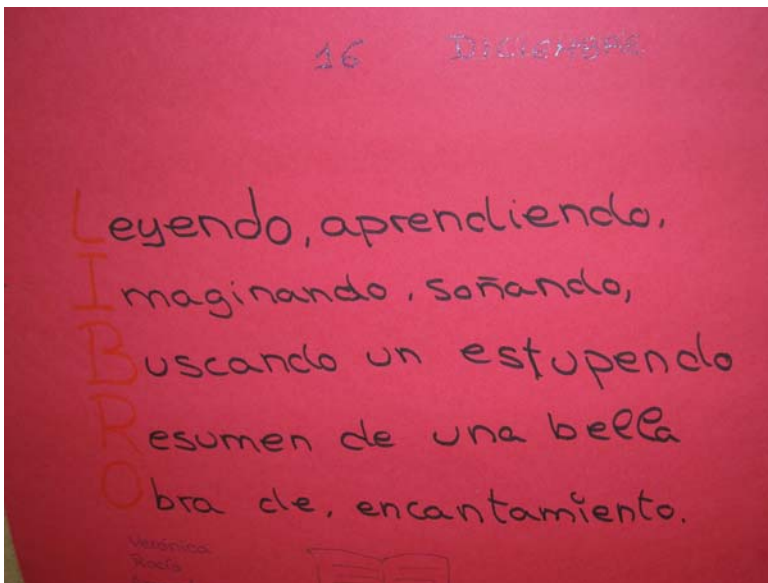 16 DICIEMBRE
Leyendo, aprendiendo,
Imaginando, soñando,
Buscando un estupendo
Resumen de una bella
Obra de, encantamiento.
Verónica
Rocío